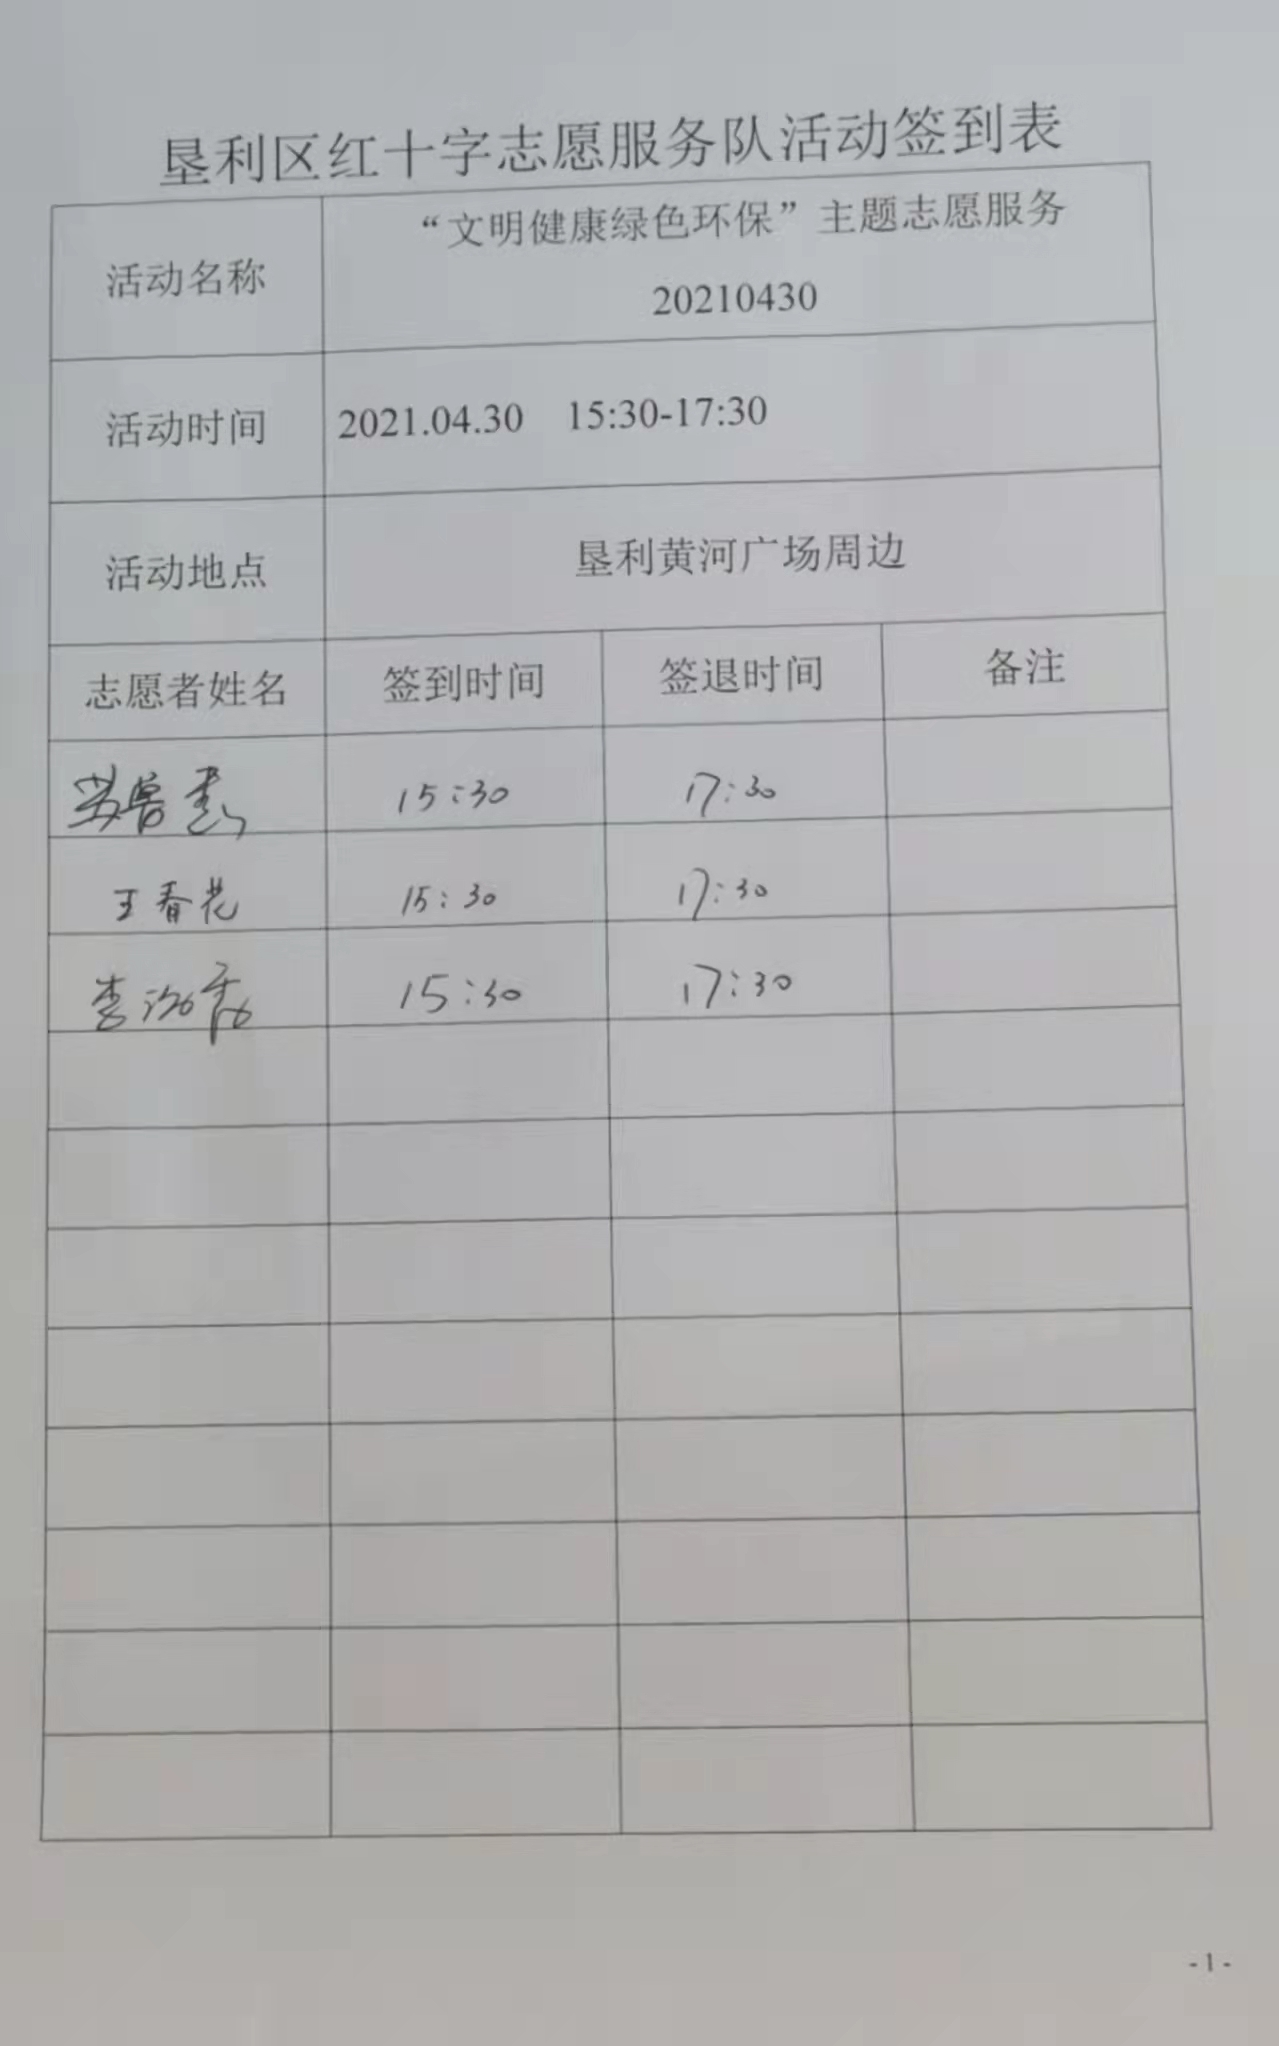 垦利区红十字志愿服务队活动签到表
活动名称
“文明健康绿色环保”主题志愿服务
20210430
活动时间
2021.04.30 15:30-17:30
活动地点
垦利黄河广场周边
志愿者姓名 签到时间 签退时间 备注
15:30 17:30
王春花 15:30 17:30
李 15:30 17:30
-1-